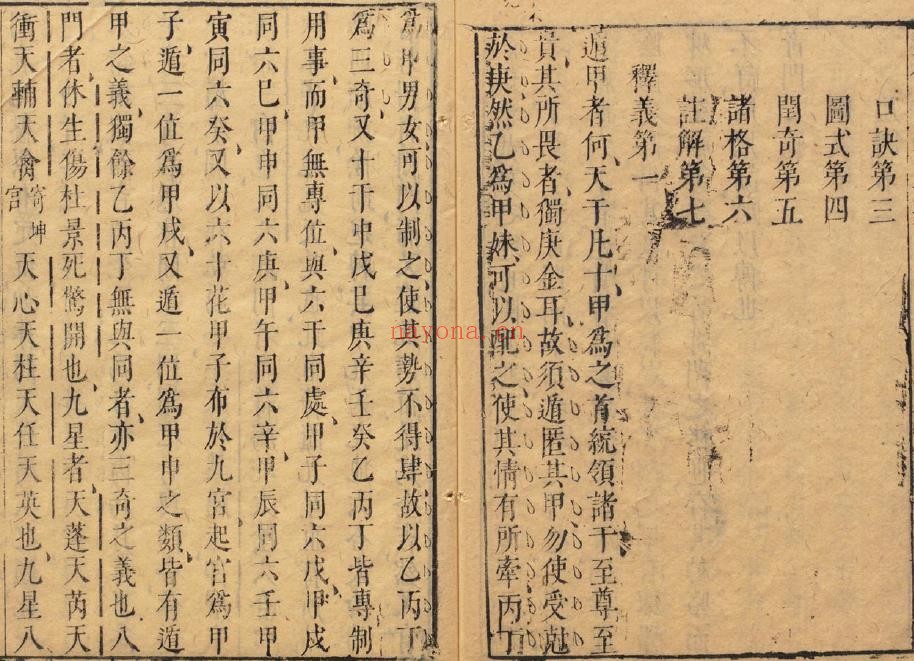 口訣第三
圖式第四
閏奇第五
諸格第六
註解第七
釋義第一
遁甲者何天干凡十甲爲之首統領諸干至尊至
貴其所畏者獨庚金耳故須遁匿其甲勿使受尅
於庚然乙爲甲妹可以配之使其情有所牽丙丁
爲甲男女可以制之使其勢不得肆故以乙丙丁
爲三奇又十干中戊巳庚辛壬癸乙丙丁皆專制
用事而甲無專位與六干同處甲子同六戊甲戌
同六巳甲申同六庚甲午同六辛甲辰同六壬甲
寅同六癸又以六十花甲子布於九宮起宮爲甲
子遁一位爲甲戌又遁一位爲甲申之類皆有遁
甲之義獨餘乙丙丁無與同者亦三奇之義也八
門者休生傷杜景死驚開也九星者天蓬天芮天
衝天輔天禽寄坤宮天心天柱天任天英也九星八
nayona.cn